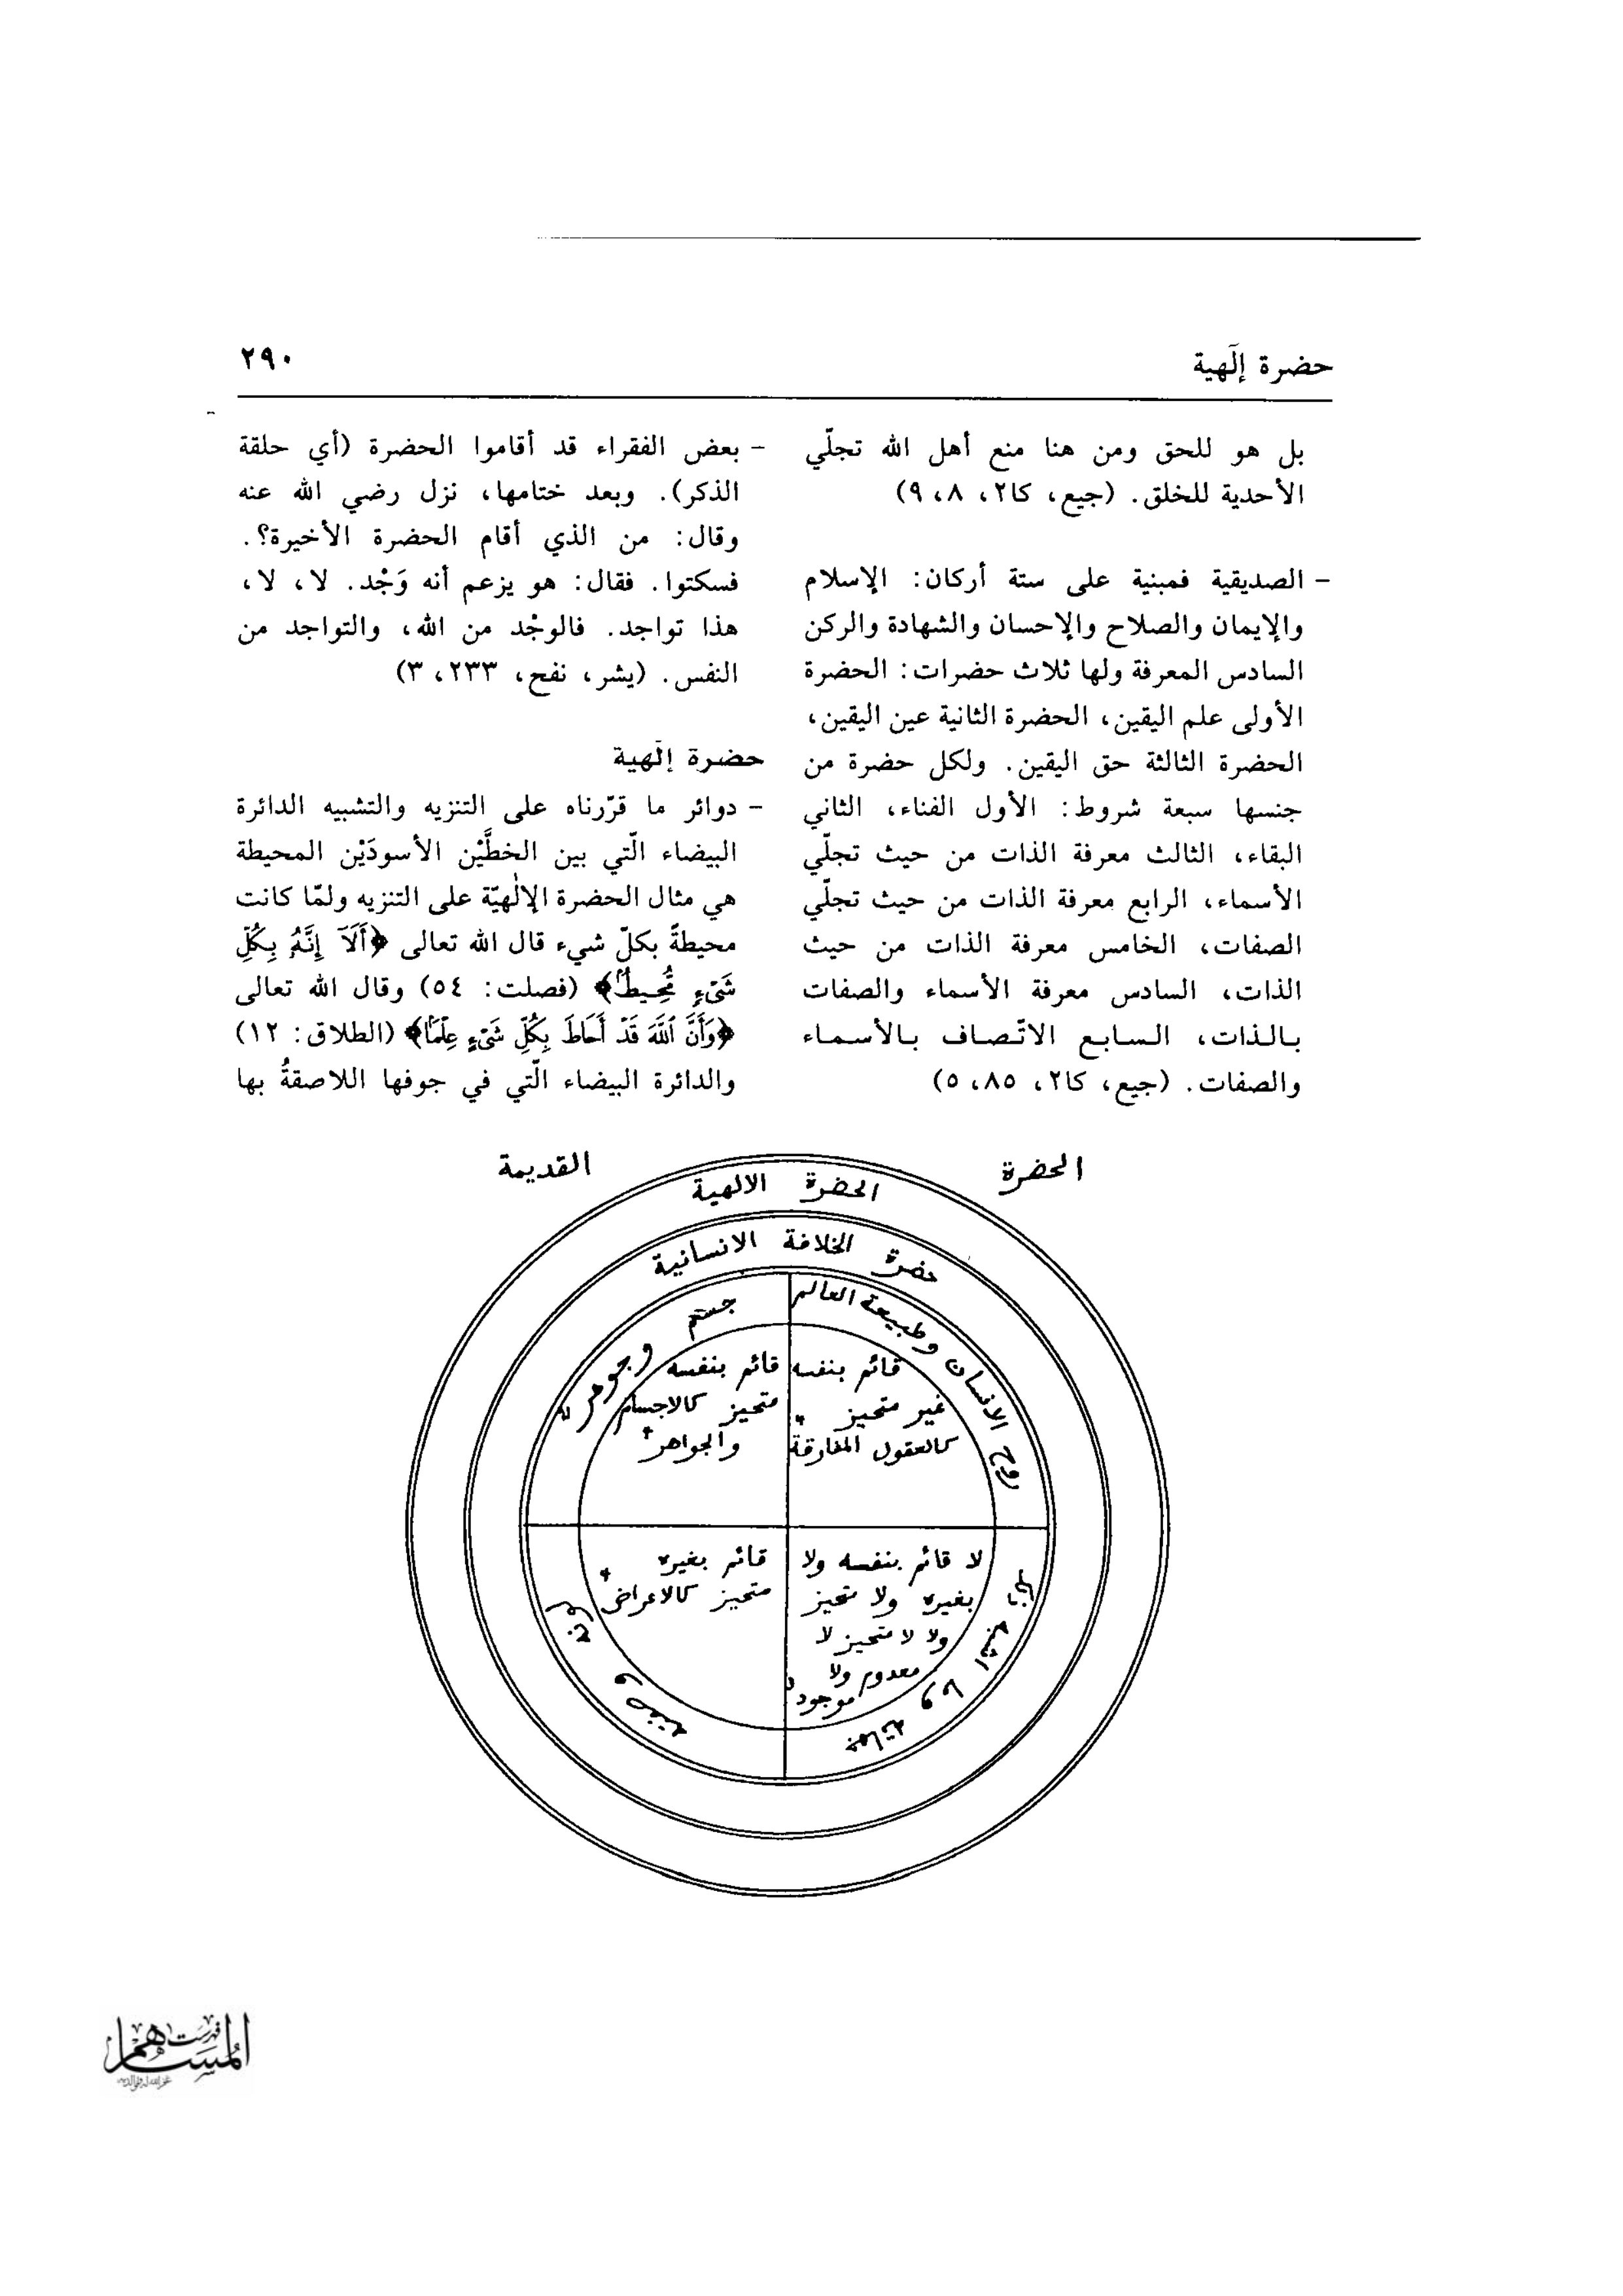 حضرة إلٓهية
٢٩٠
بل هو للحق ومن هنا منع أهل الله تجلّي
الأحدية للخلق. (جيع، كا٢، ٨، ٩)
– الصديقية فمبنية على ستة أركان: الإسلام
والإيمان والصلاح والإحسان والشهادة والركن
السادس المعرفة ولها ثلاث حضرات: الحضرة
الأولى علم اليقين، الحضرة الثانية عين اليقين،
الحضرة الثالثة حق اليقين. ولكل حضرة من
جنسها سبعة شروط: الأول الفناء، الثاني
البقاء، الثالث معرفة الذات من حيث تجلّي
الأسماء، الرابع معرفة الذات من حيث تجلّي
الصفات، الخامس معرفة الذات من حيث
الذات، السادس معرفة الأسماء والصفات
بالذات، السابع الاتّصاف بالأسماء
والصفات. (جيع، كا٢، ٨٥، ٥)
– بعض الفقراء قد أقاموا الحضرة (أي حلقة
الذكر). وبعد ختامها، نزل رضي الله عنه
وقال: من الذي أقام الحضرة الأخيرة؟.
فسكتوا. فقال: هو يزعم أنه وَجْد. لا، لا،
هذا تواجد. فالوجْد من الله، والتواجد من
النفس. (يشر، نفح، ٢٣٣، ٣)
حضرة إلٓهية
– دوائر ما قرّرناه على التنزيه والتشبيه الدائرة
البيضاء الّتي بين الخطَّيْن الأسودَيْن المحيطة
هي مثال الحضرة الإلٰهيّة على التنزيه ولمّا كانت
محيطةً بكلّ شيء قال الله تعالى ﴿أَلَآ إِنَّهُۥ بِكُلِّ
شَىْءٍ مُّحِيطٌۢ﴾ (فصلت: ٥٤) وقال الله تعالى
﴿وَأَنَّ ٱللَّهَ قَدْ أَحَاطَ بِكُلِّ شَىْءٍ عِلْمًۢا﴾ (الطلاق: ١٢)
والدائرة البيضاء الّتي في جوفها اللاصقةُ بها
الحضرة
القديمة
الحضرة الالهية
حضرة الخلافة الانسانية
روح الانسان وطبيعة العالم
جسم وجوهر
قائم بنفسه
غير متحيز
كالعقول المفارقة
قائم بنفسه
متحيز كالاجسام
والجواهر
لا قائم بنفسه ولا
بغيره ولا متحيز
ولا لا متحيز لا
معدوم ولا
موجود
قائم بغيره
متحيز كالاعراض